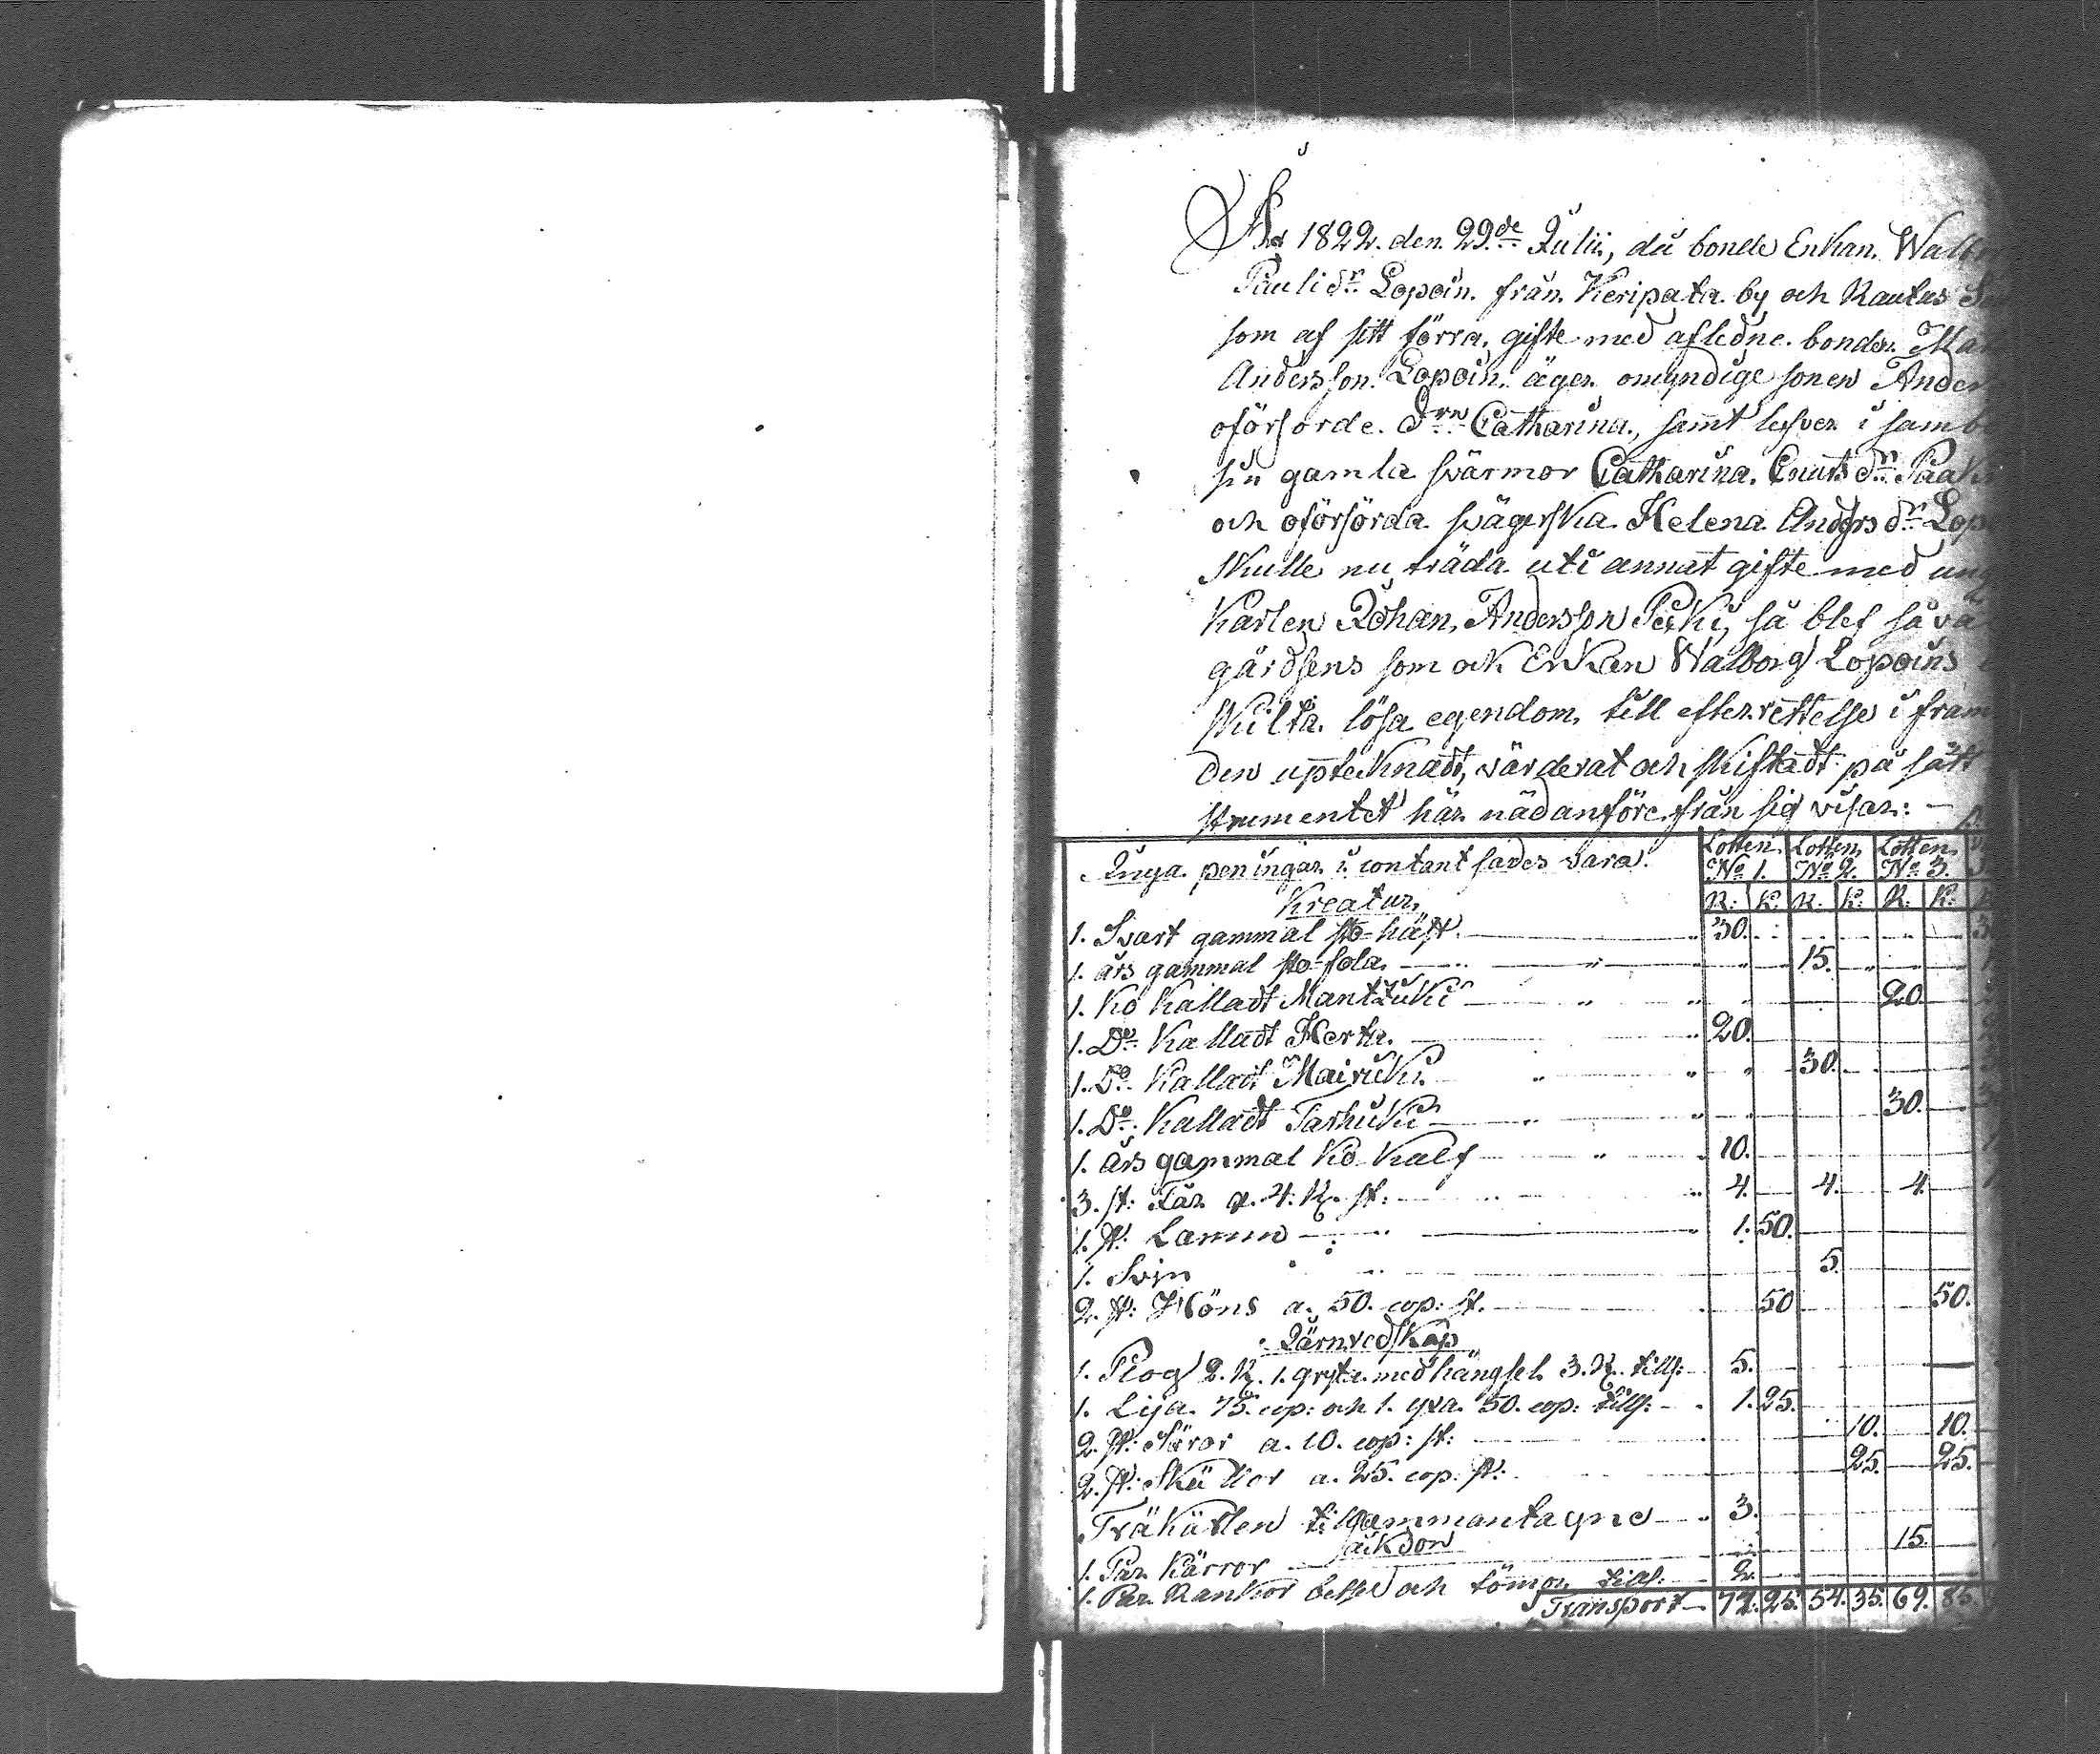 År 1822. den 29de Julii, då bonde Enkan Walb
Paulidr. Lopoin från Keripata by och Rautus
som af sitt förra gifte med aflednе bonden Ma
Andersson Lopoin äger omyndige sonen Ander
oförsorde drn Catharina, samt lefver i samb
sin gamla svärmor Catharina Cnutsdr.
och oförsörda svägerska Helena Andersdr. Lopo
skulle nu träda uti annat gifte med un
Karlen Johan Andersson Pukki, så blef såvä
gårdsens som ock Enkan Walborg Lopoins
lösa egendom till efterrettelse i fram
den uptecknadt, värderat och skiftadt på sätt
strumentet här nädanföre från sig visar: —
Inga peningar i contant sades vara. Lotten No 1. Lotten No 2. Lotten No 3.
Kreatur. R: K: R: K: R: K:
1. Svart gammal sto-häst. 30.
1. års gammal sto-fola 15.
1. Ko kalladt Mantzuki 20.
1. Do kalladt Herta 20.
1. Do kalladt Mairuki 30.
1. Do kalladt Tarhuki 30.
1. års gammal Ko Kalf 10.
3. st: Får a. 4. R. st: 4. 4. 4.
1. st: Lamm 1. 50.
1. Svin 5.
2. st: Höns a. 50. cop: st. 50 50.
Järnredskap
1. Plog 2. R. 1. gryta med hängsel 3. R. tills: 5.
1. Lija 75. cop: och 1. yxa 50. cop: tills: 1. 25.
2. st: Skäror a. 10. cop: st: 10. 10.
2. st: a. 25. cop. st: 25. 25.
Träkärlen tillsammantagne 3.
åkdon
1. Par Kärror 15.
1. Par Rankor betsel och tömar tills: 2.
Transport 77. 25. 54. 35. 69. 85.